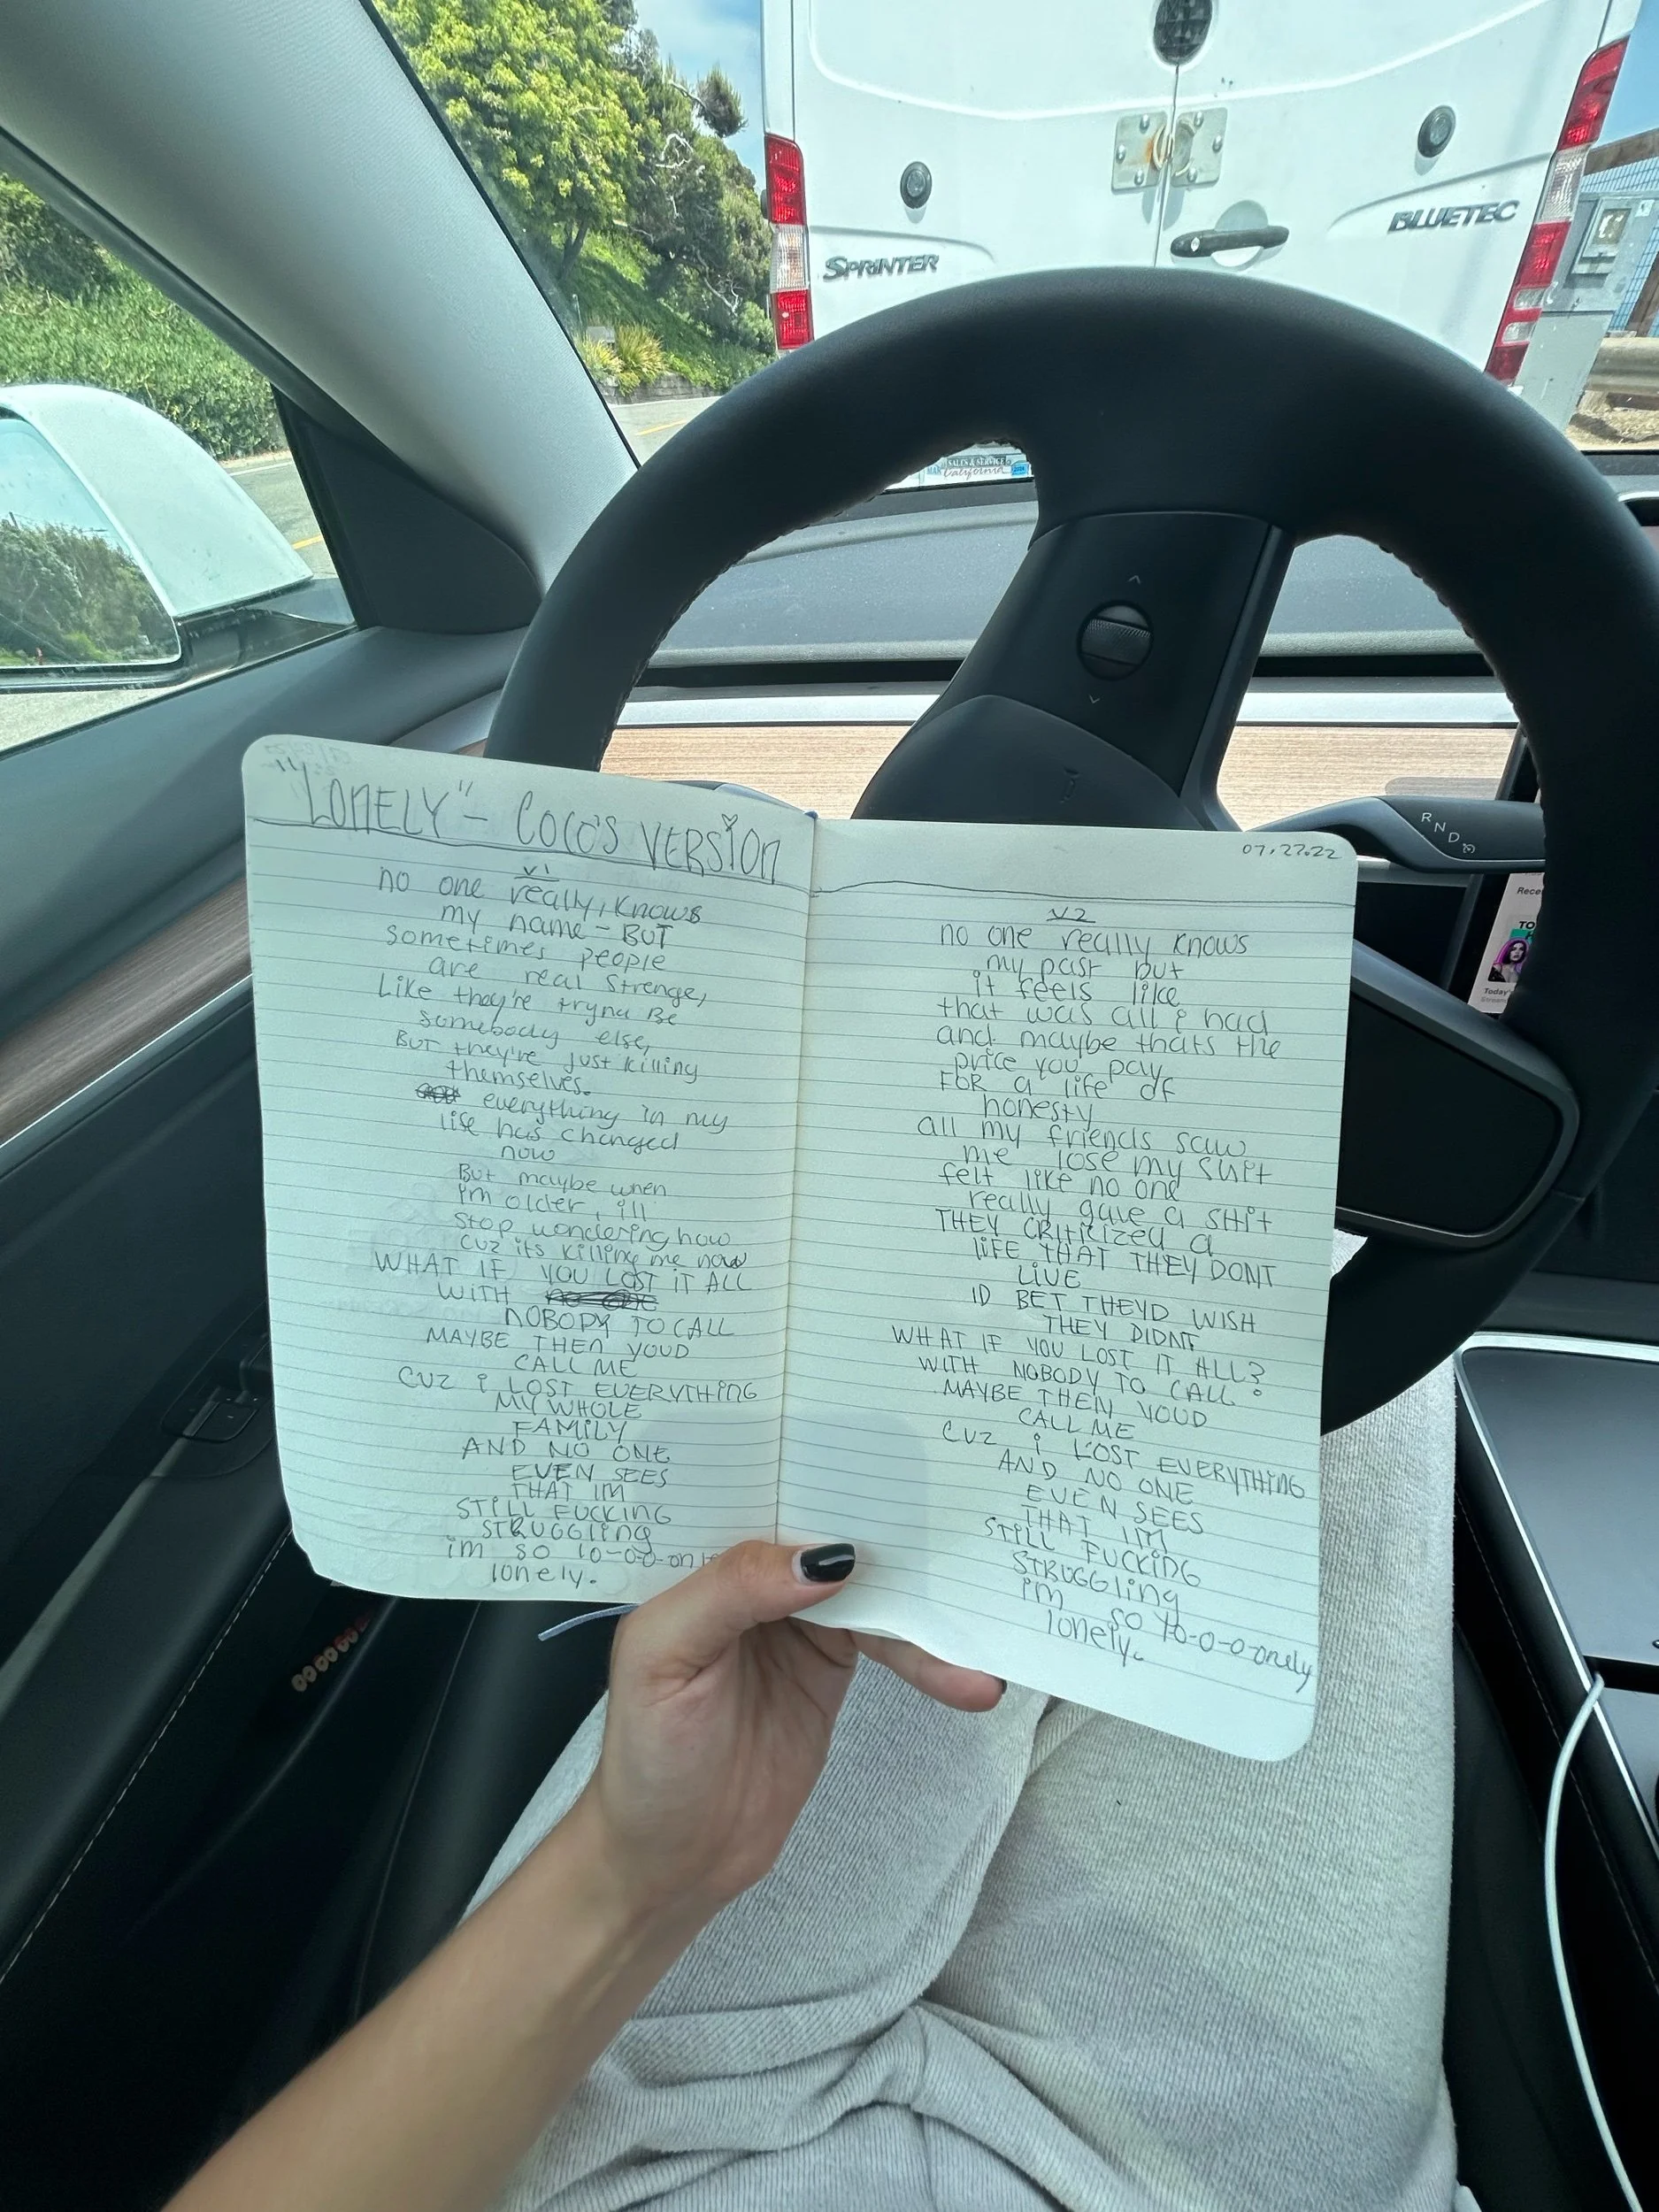 SPRINTER
BLUETEC
SALES & SERVICE
California
"LONELY" - COCO'S VERSION
v1
no one really, knows
my name - BUT
sometimes people
are real strenge,
Like they're tryna Be
somebody else,
BUT they're just killing
themselves.
everything in my
life has changed
now
But maybe when
im older, ill
stop wondering how
cuz its killing me now
WHAT IF YOU LOST IT ALL
WITH
NOBODY TO CALL
MAYBE THEN YOUD
CALL ME
CUZ i LOST EVERYTHING
MY WHOLE
FAMILY
AND NO ONE
EVEN SEES
THAT IM
STILL FUCKING
STRUGGLING
im so lo-o-o-on
lonely.
07.27.22
v2
no one really knows
my past but
it feels like
that was all i had
and maybe thats the
price you pay
FOR a life of
honesty
all my friends saw
me lose my shit
felt like no one
really gave a shit
THEY CRITICIZED a
LIFE THAT THEY DONT
LIVE
ID BET THEYD WISH
THEY DIDNT
WHAT IF YOU LOST IT ALL?
WITH NOBODY TO CALL?
MAYBE THEN YOUD
CALL ME
CUZ i LOST EVERYTHING
AND NO ONE
EVEN SEES
THAT IM
STILL FUCKING
STRUGGLING
im so lo-o-o-onely
lonely.
R
N
D
Rece
TO
Today's
Stream